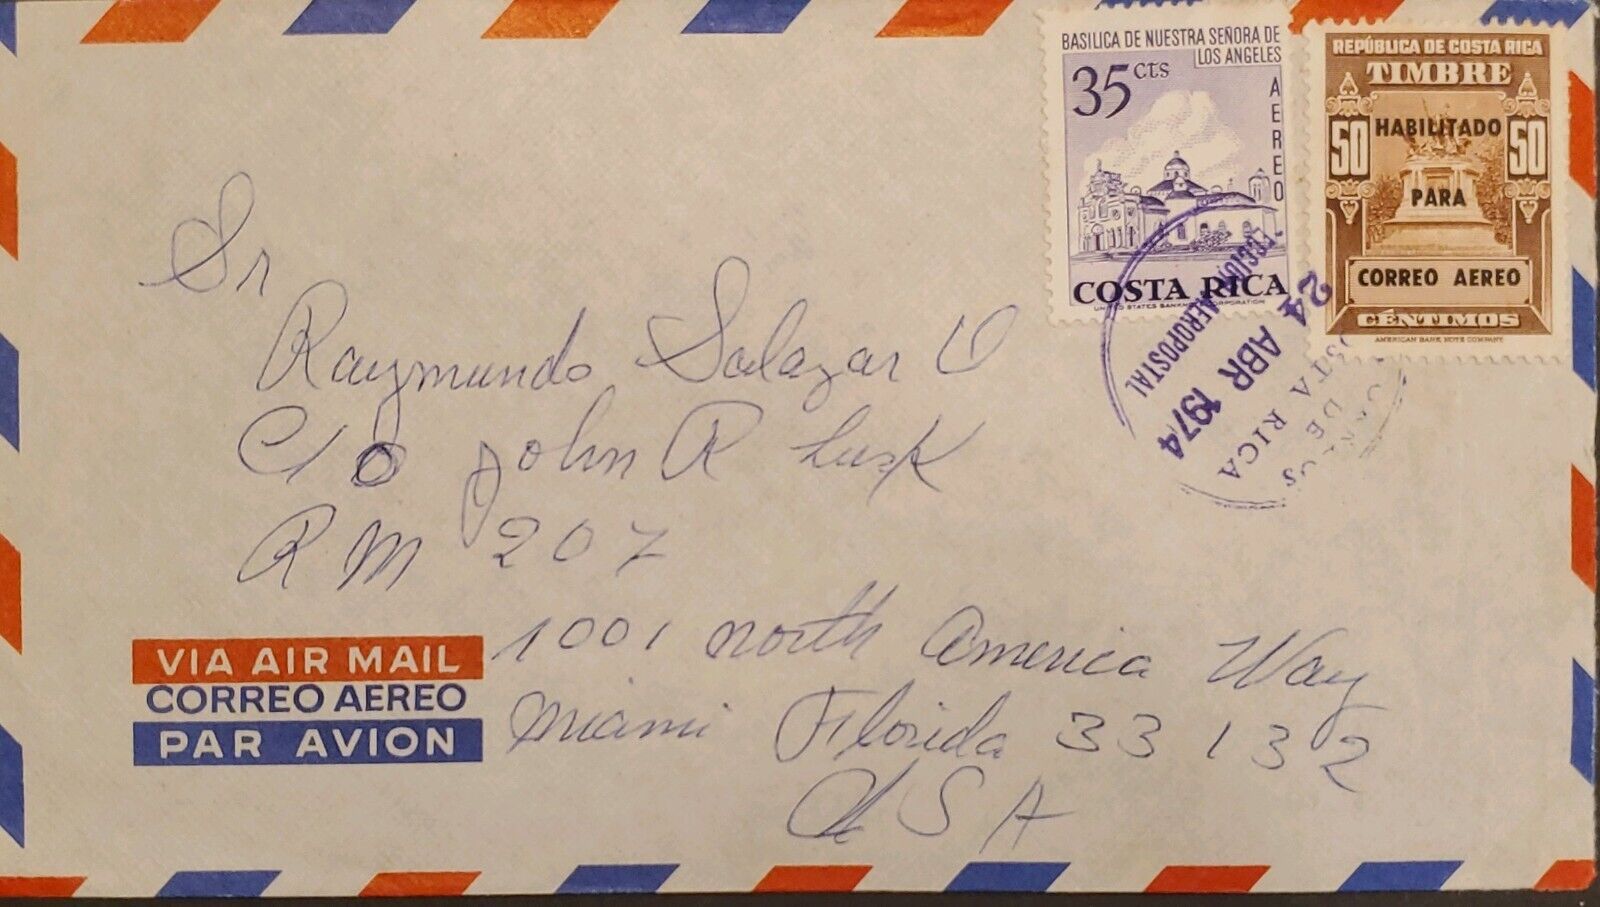 BASILICA DE NUESTRA SEÑORA DE
LOS ANGELES
35 CTS
AEREO
COSTA RICA
UNITED STATES BANKNOTE CORPORATION
REPÚBLICA DE COSTA RICA
TIMBRE
50 HABILITADO 50
PARA
CORREO AEREO
CÉNTIMOS
AMERICAN BANK NOTE COMPANY
AEROPOSTAL
24 ABR 1974
DE
COSTA RICA
Sr
Raymundo Salazar U
C/o John R Lusk
RM 207
1001 North America Way
Miami Florida 33132
USA
VIA AIR MAIL
CORREO AEREO
PAR AVION